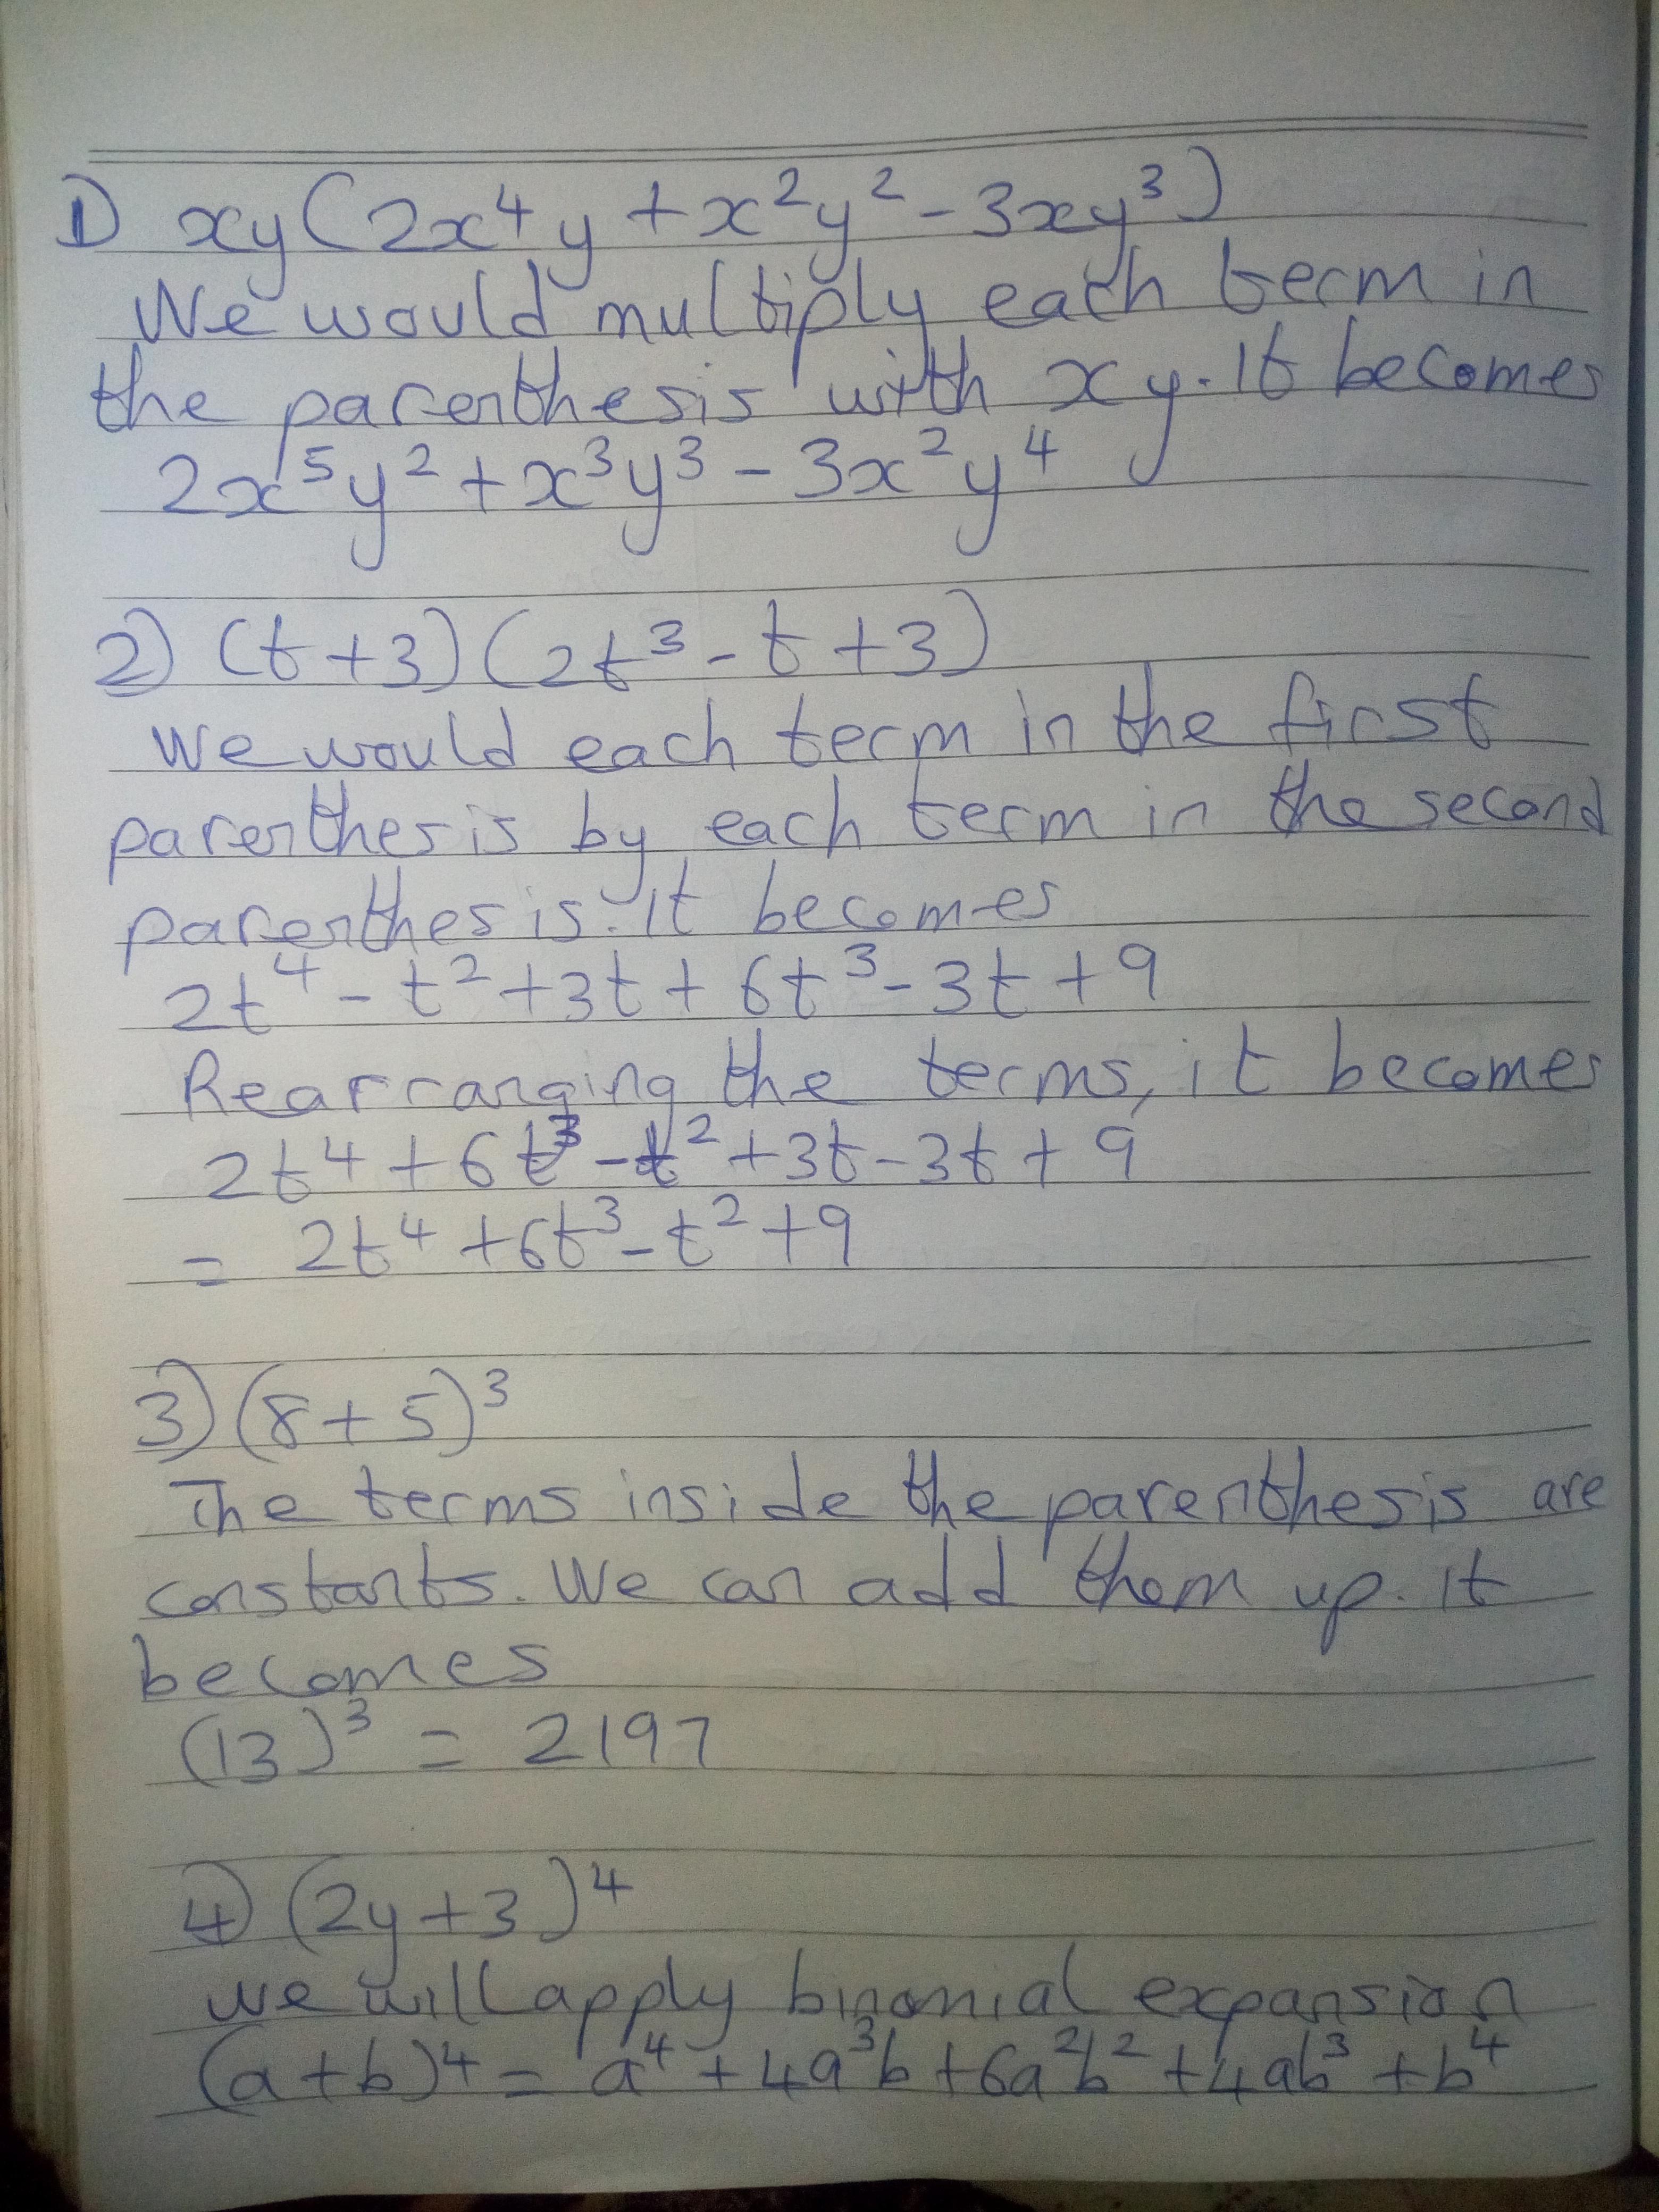 1) xy(2x⁴y + x²y² - 3xy³)
We would multiply each term in
the parenthesis with xy. It becomes
2x⁵y² + x³y³ - 3x²y⁴
2) (t+3)(2t³ - t + 3)
We would each term in the first
parenthesis by each term in the second
parenthesis. It becomes
2t⁴ - t² + 3t + 6t³ - 3t + 9
Rearranging the terms, it becomes
2t⁴ + 6t³ - t² + 3t - 3t + 9
= 2t⁴ + 6t³ - t² + 9
3) (8+5)³
The terms inside the parenthesis are
constants. We can add them up. It
becomes
(13)³ = 2197
4) (2y+3)⁴
We will apply binomial expansion
(a+b)⁴ = a⁴ + 4a³b + 6a²b² + 4ab³ + b⁴